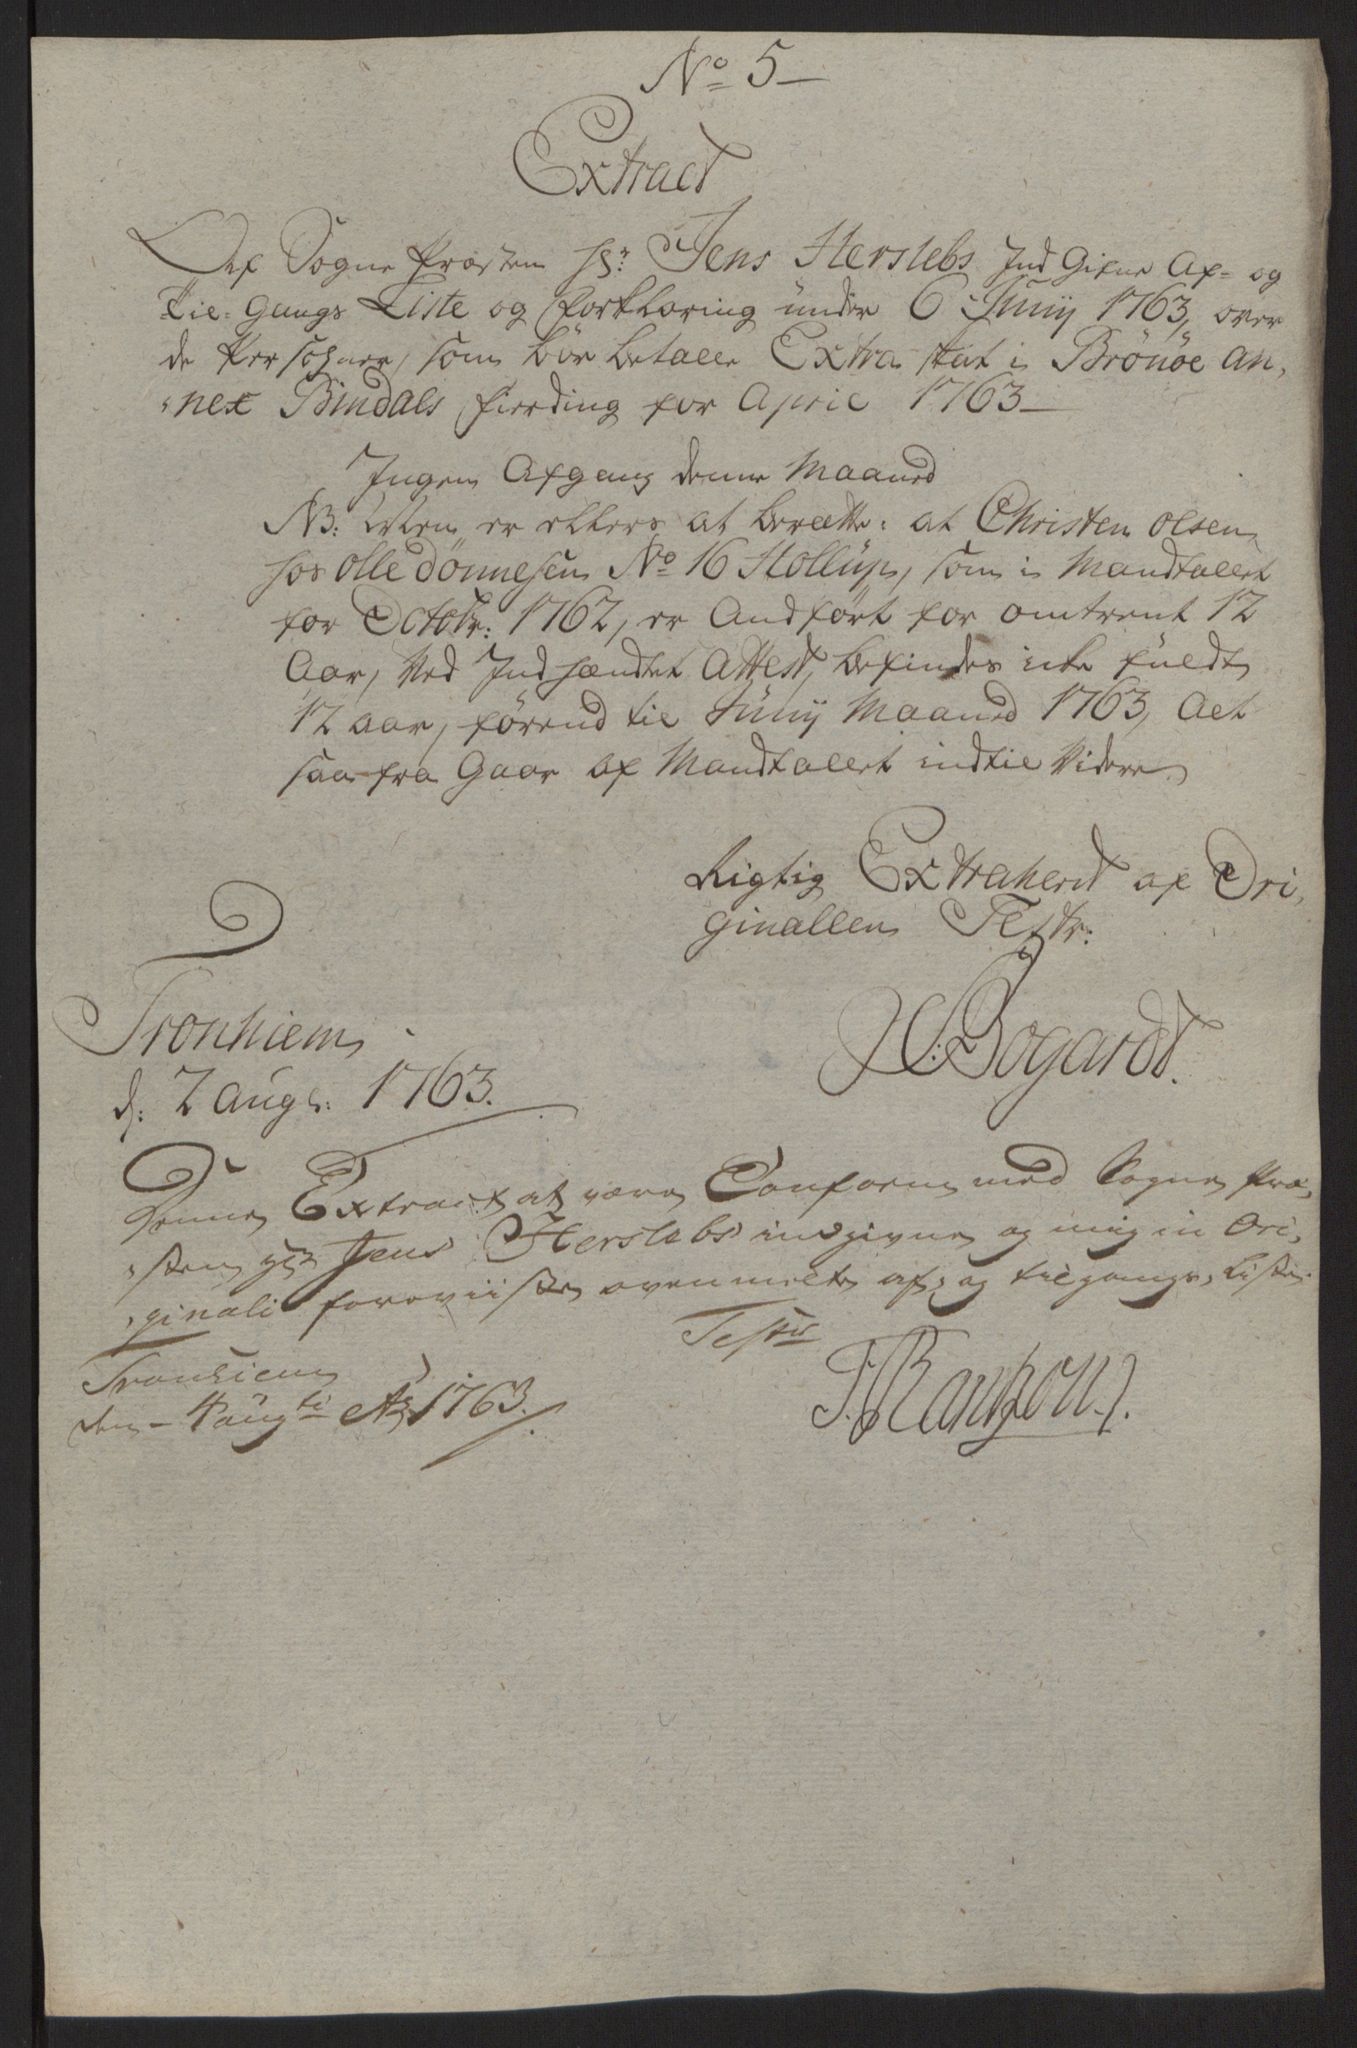 No 5
Extract
Af Sogne Præsten Hr: Jens Herslebs Ind Gifne Af- og
Til-Gangs Liste og Forklaring under 6 Junij 1763, over
de Persohner, som bör betalle Extra skat i Brönöe An,
,nex Bindals fierding for April 1763
Ingen Afgang denne Maaned
NB: Men er ellers at berætte: at Christen Olsen
hos Olle Dönnesen No 16 Hollup, som i Mandtallet
for Octobr: 1762, er Andfört for omtrent 12
Aar, Ved Indhændet Attest, befindes icke fuldt
12 aar, förend til Junij Maaned 1763, Alt
saa fra Gaar af Mandtallet indtil Videre
Rigtig Extraherit af Ori,
ginallen Testr:
H: Bogardt.
Tronhiem
d: 2 Augs: 1763.
Denne Extract at være Conform med Sogne Præ,
,sten Hr Jens Herslebs indgivne og mig in Ori,
,ginali foreviiste ovenmelte af- og tilgangs-Liste
Tester
Tronhiem
den 4 augti Ao 1763.